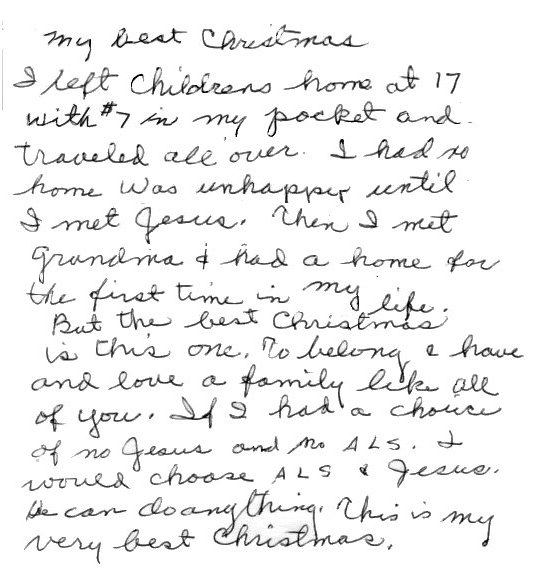 My best Christmas
I left Childrens home at 17
with #7 in my pocket and
traveled all over. I had no
home was unhappy until
I met Jesus. Then I met
Grandma & had a home for
the first time in my life.
But the best Christmas
is this one. To belong & have
and love a family like all
of you. If I had a choice
of no Jesus and no ALS. I
would choose ALS & Jesus.
He can do anything. This is my
very best Christmas.